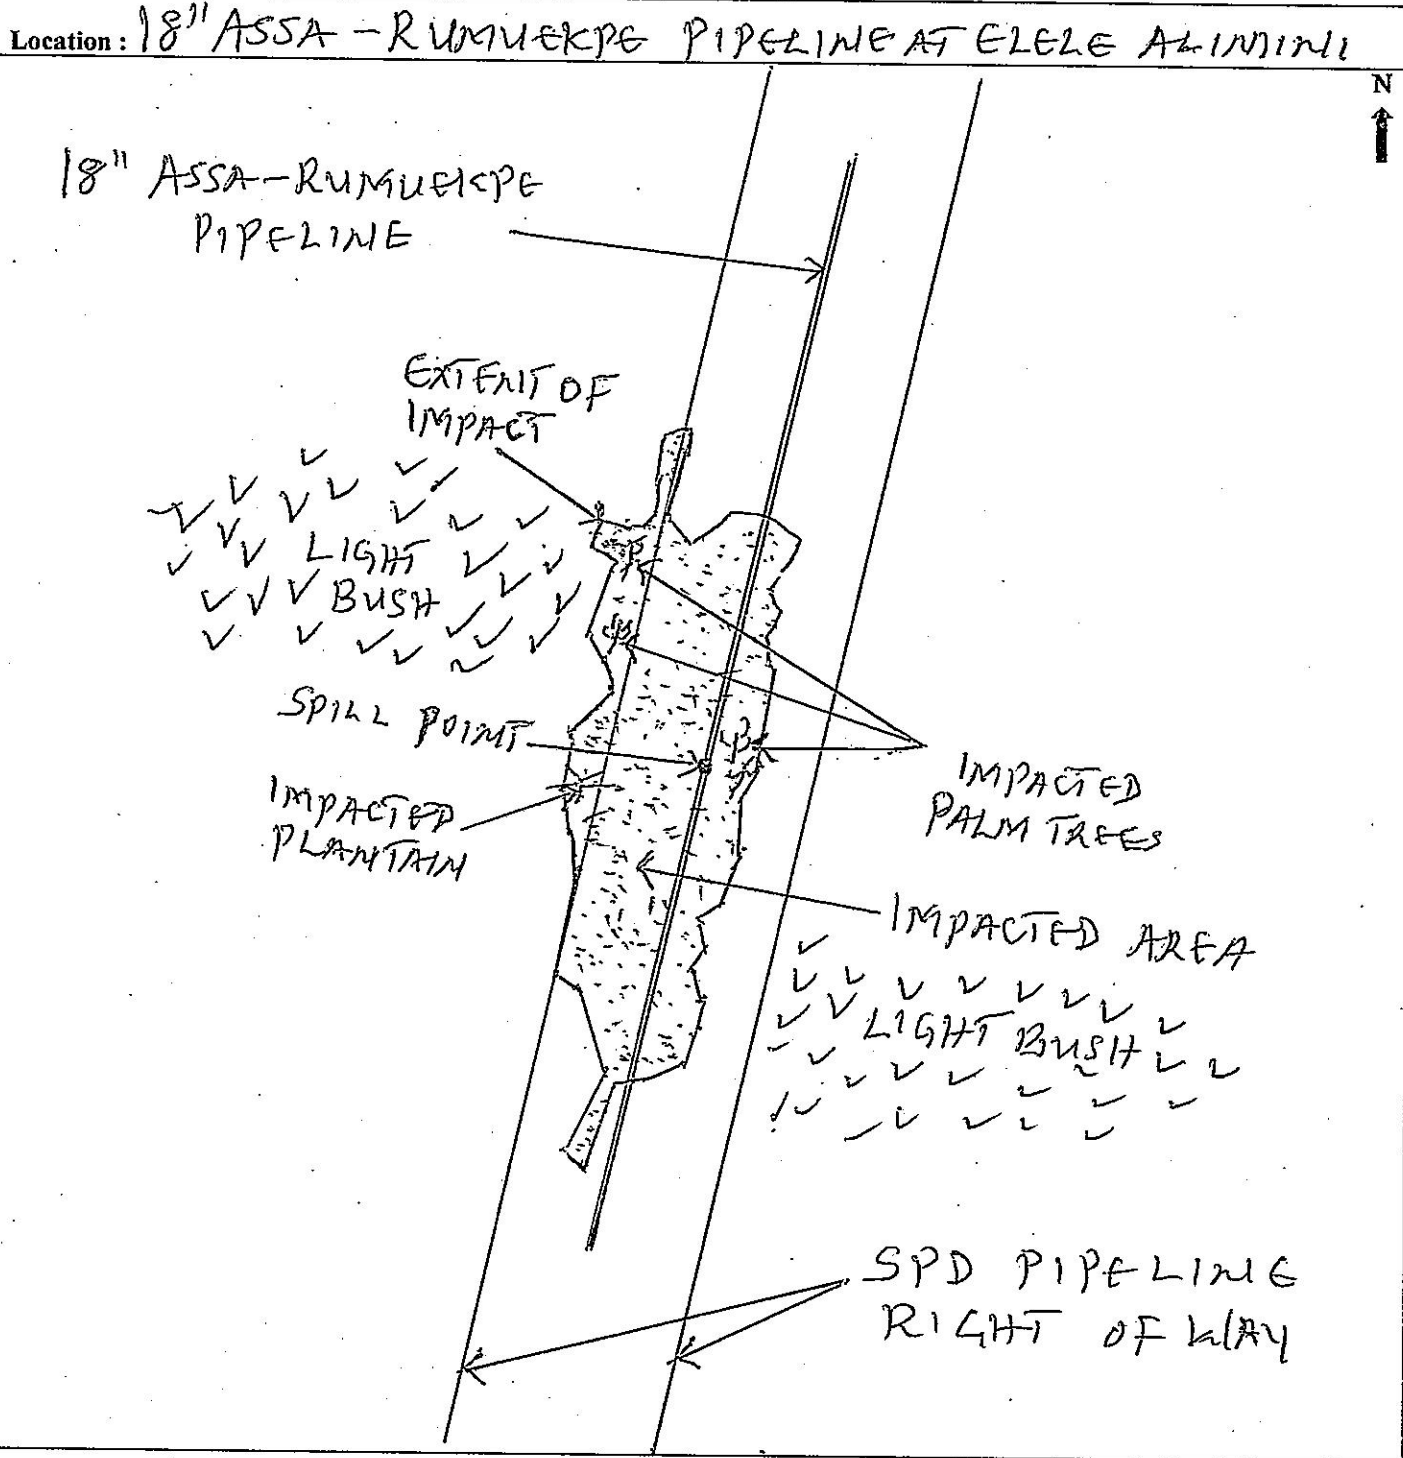 Location : 18" ASSA - RUMUEKPE PIPELINE AT ELELE ALIMINI
N
18" ASSA-RUMUEKPE
PIPELINE
EXTENT OF
IMPACT
LIGHT
BUSH
SPILL POINT
IMPACTED
PLANTAIN
IMPACTED
PALM TREES
IMPACTED AREA
LIGHT BUSH
SPD PIPELINE
RIGHT OF WAY